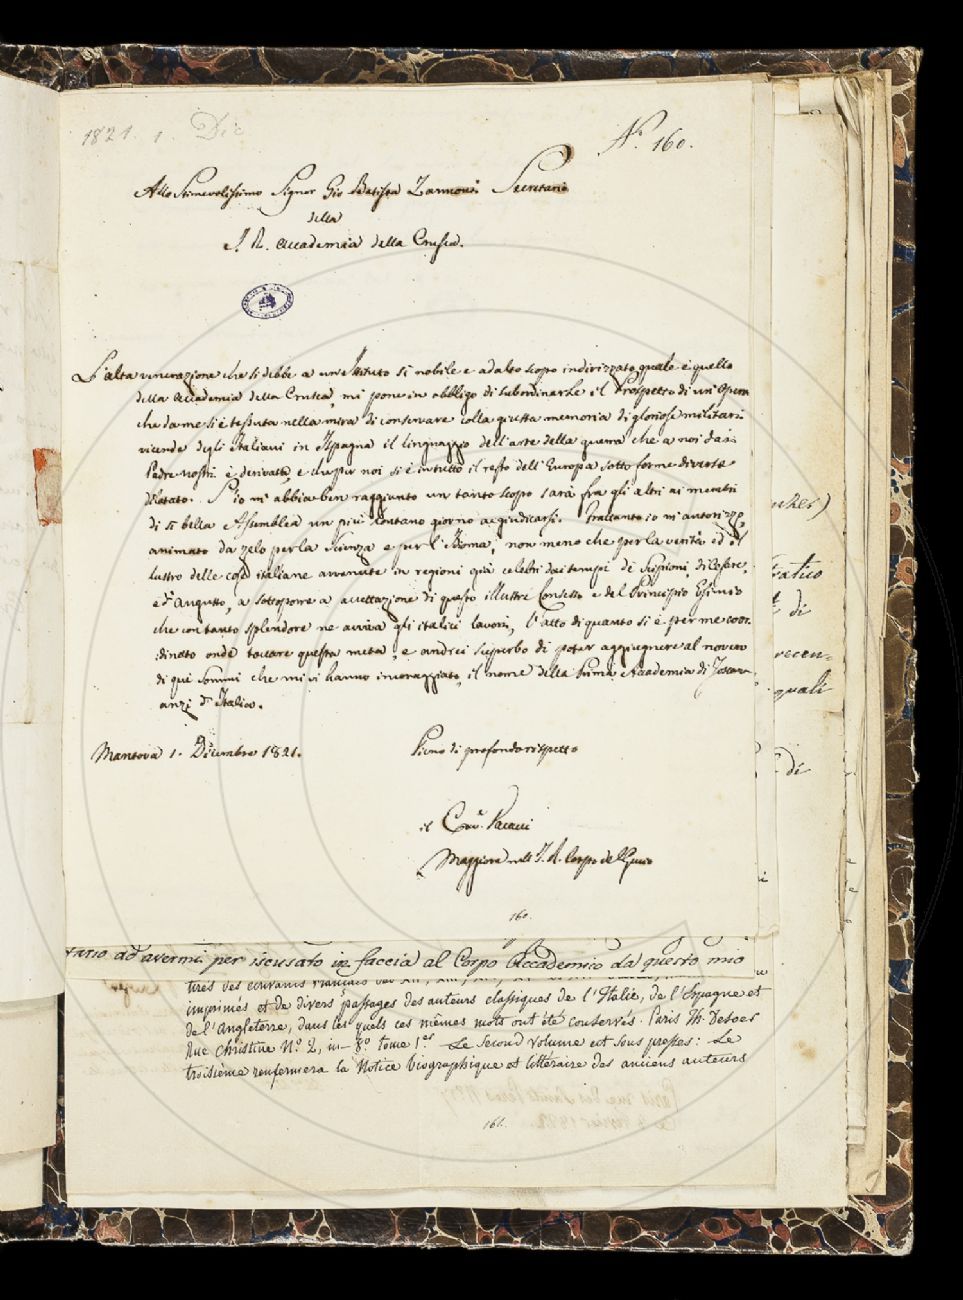 1821. 1. Dic
N.° 160.
Allo Stimevolissimo Signor Gio Batista Zannoni Secretario
della
I. R. Accademia della Crusca.
L'alta venerazione che si debbe a un Istituto si nobile e ad alto scopo indirizzato, quale è quello
della Accademia della Crusca, mi pone in obbligo di subordinarle il Prospetto di un'Opera
che da me si è tessuta nella mira di conservare colla giusta memoria di gloriose militari
vicende degli Italiani in Ispagna il linguaggio dell'arte della guerra che a noi dai
Padri nostri è derivato, e che per noi si è in tutto il resto dell'Europa sotto forme diverse
dilatato. S'io m'abbia ben raggiunto un tanto scopo sarà fra gli altri ai membri
di sì bella Assemblea un più lontano giorno a giudicarsi. Frattanto io m'autorizzo,
animato da zelo per la Scienza e per l'Idioma, non meno che per la verità ed il
lustro delle cose italiane avvenute in regioni già celebri dai tempi de' Scipioni, di Cesare,
e d'Augusto, a sottoporre a accettazione di questo illustre Consesso e del Principio Esimio
che con tanto splendore ne avviva gli italici lavori, l'atto di quanto si è per me coor-
dinato onde toccare questa meta, e andrei superbo di poter aggiugnere al novero
di quei Sommi che mi vi hanno incoraggiato, il nome della Prima Accademia di Toscana
anzi d'Italia.
Mantova 1. Dicembre 1821.
Pieno di profondo rispetto
il Cav.
Maggiore nell'I. R. Corpo del Genio
160.
ad avermi per iscusato in faccia al Corpo Accademico da questo mio
imprimés et de divers passages des auteurs classiques de l'Italie, de l'Espagne et
de l'Angleterre, dans les quels ces mêmes mots ont été conservés. Paris Th. Desoer
Rue Christine N.° 2, in-8.° tome 1.er Le Second volume est sous presses: Le
troisième renfermera la Notice biographique et littéraire des anciens auteurs
161.